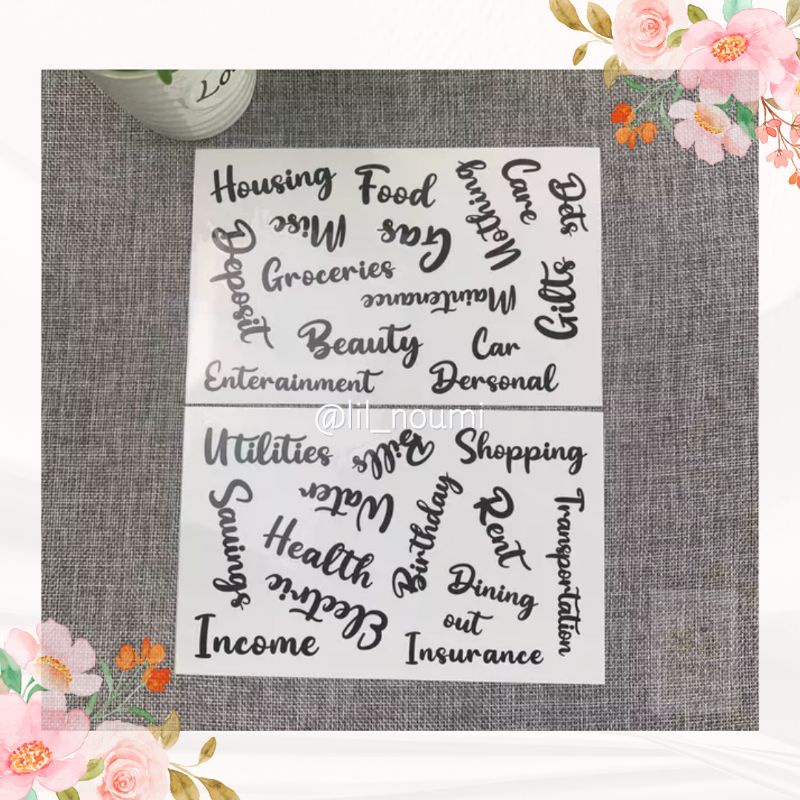 Housing
Food
Nothing
Care
Dets
Deposit
Misc
Gas
Groceries
Maintenance
Gifts
Beauty
Car
Enterainment
Dersonal
@lil_noumi
Utilities
Bills
Shopping
Savings
Water
Birthday
Rent
Transportation
Health
Electric
Dining
out
Income
Insurance